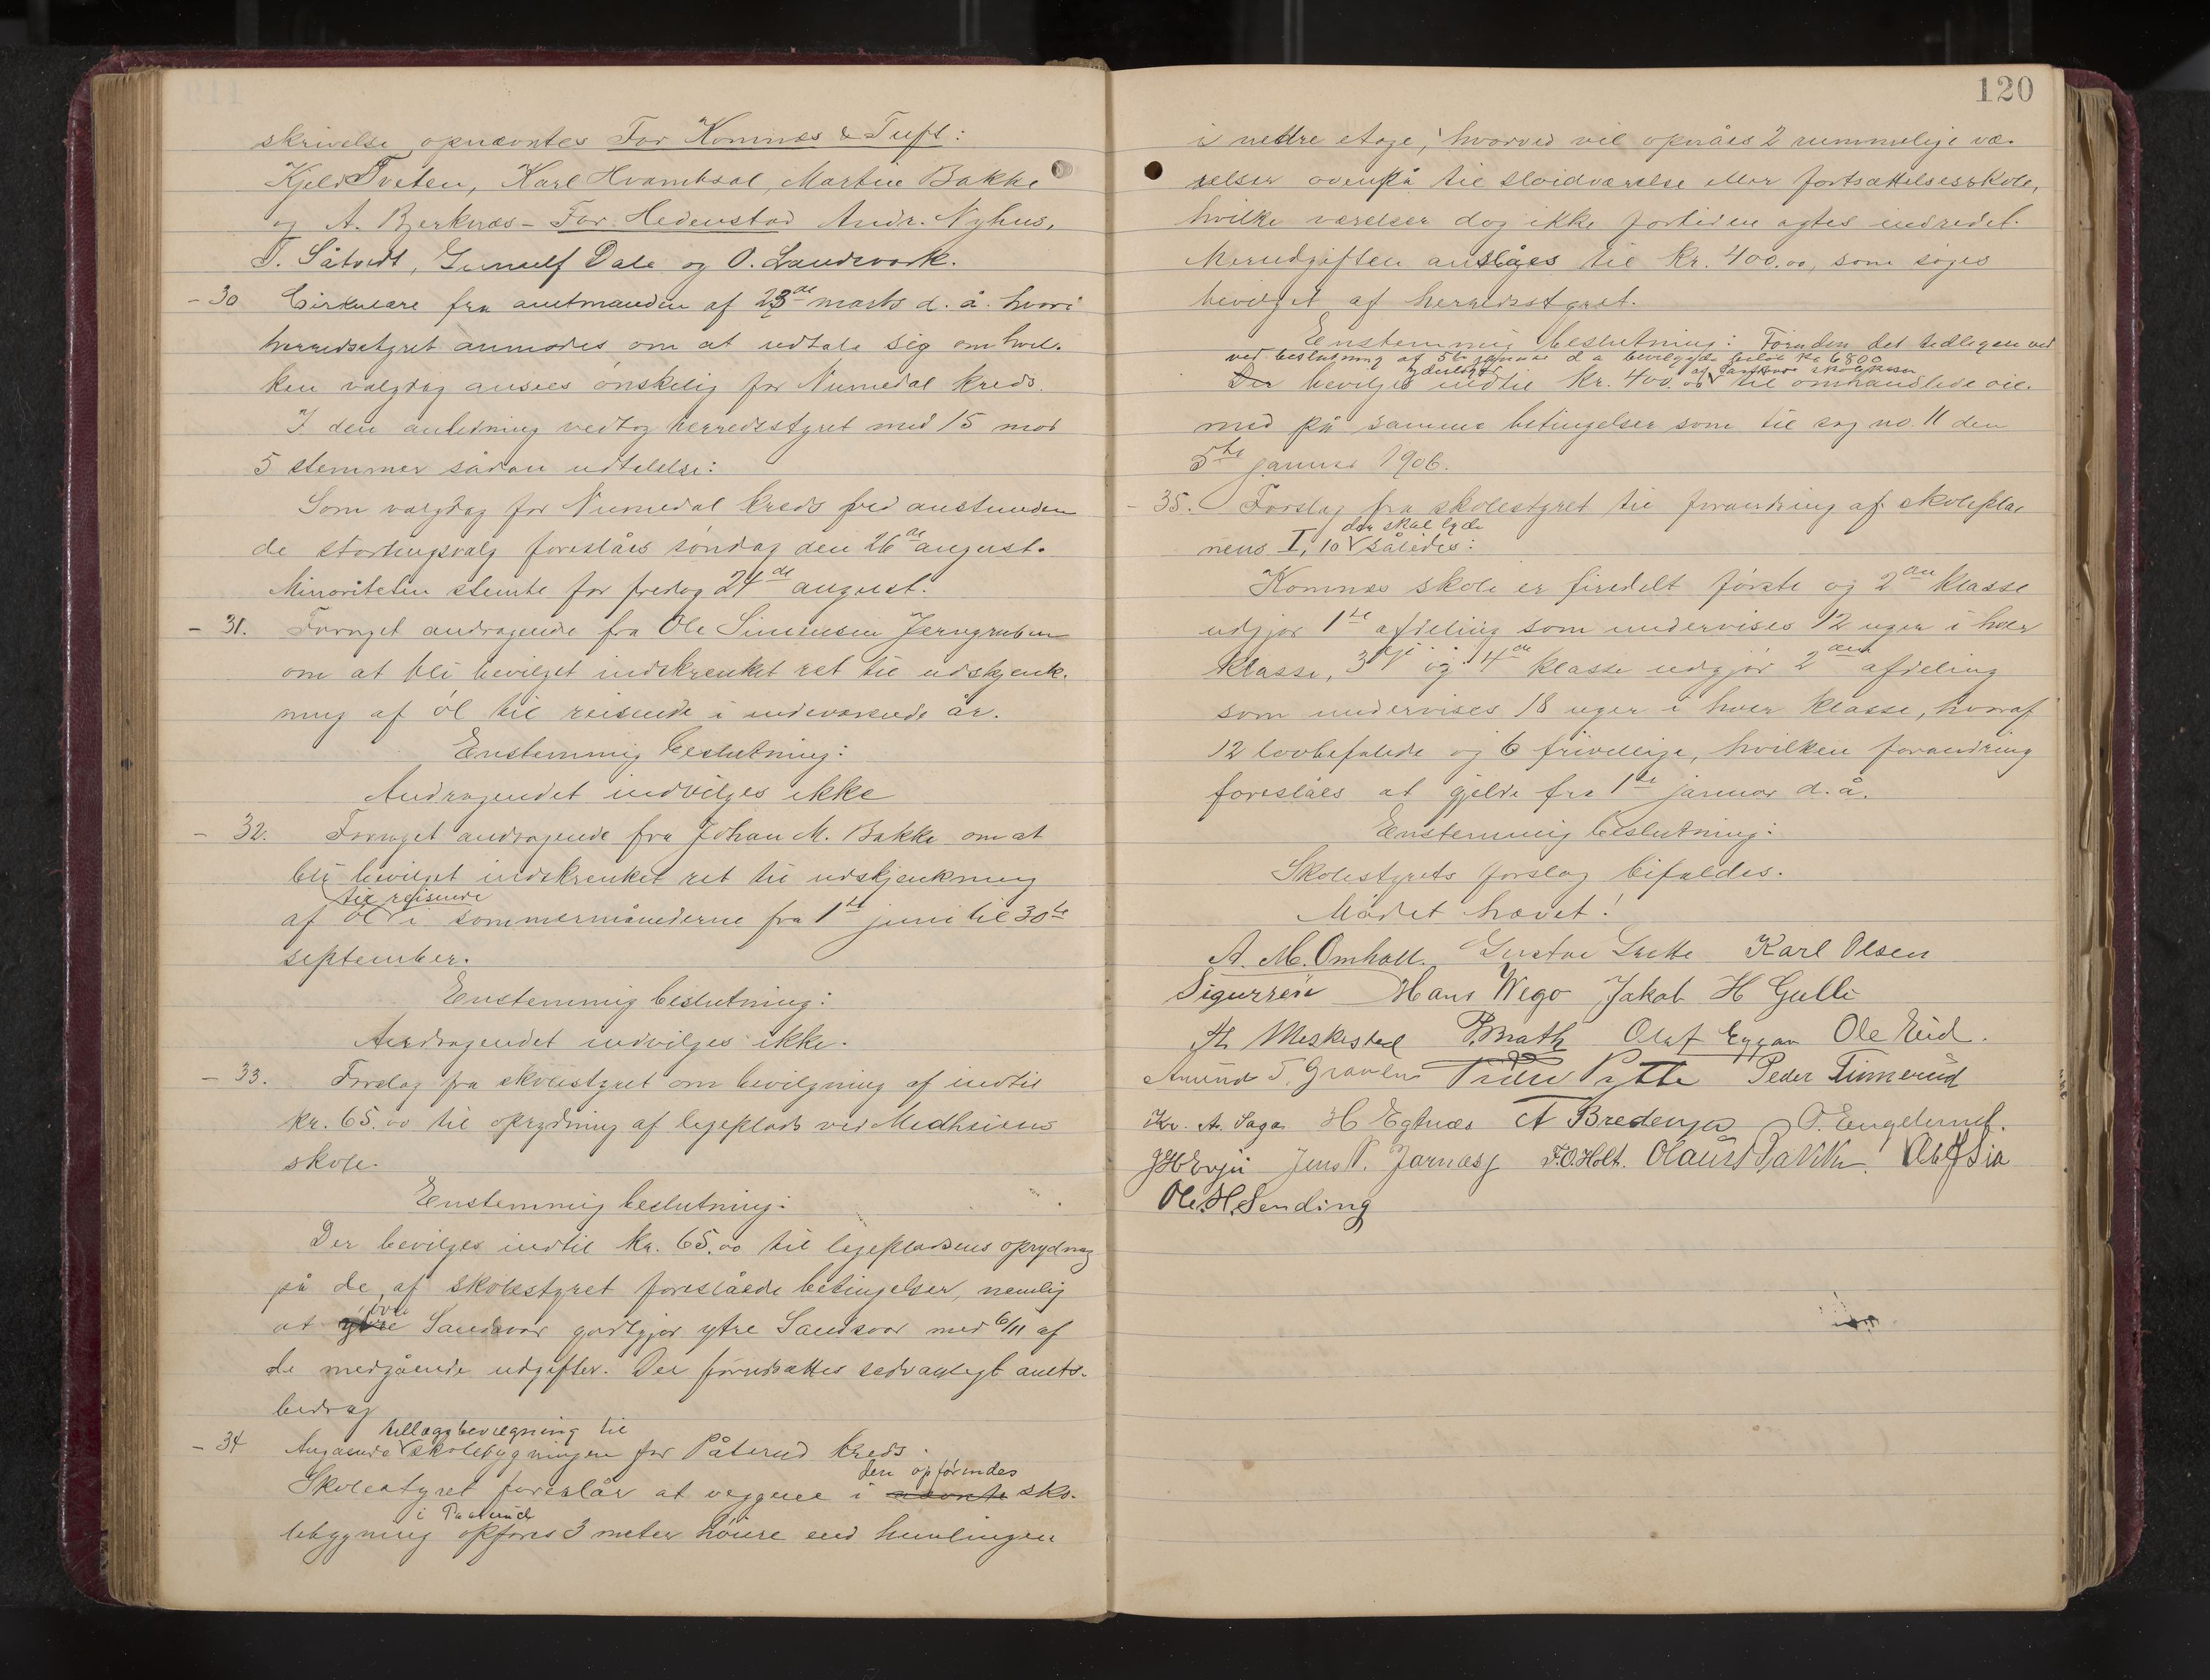 skrivelse opnævntes For Komnæs & Tuft:
Kjeld Tveten, Karl Hvambsal, Martin Bakke
og A. Bjerknæs – For Hedenstad Andr. Nyhus,
T. Såtvedt, Gunulf Dale og O. Landsverk.
– 30 Cirkulære fra amtmanden af 23de marts d. å. hvori
herredsstyret anmodes om at udtale sig om hvil-
ken valgdag ansees ønskelig for Numedal kreds.
I den anledning vedtog herredsstyret med 15 mod
5 stemmer sådan udtalelse:
Som valgdag for Numedal kreds ved anstunden
de stortingsvalg foreslåes søndag den 26de august.
Minoriteten stemte for fredag 24de august.
– 31. Fornyet andragende fra Ole Simensen Jerngruben
om at bli bevilget indskrenket ret til udskjenk-
ning af øl til reisende i indeværende år.
Enstemmig beslutning:
Andragendet indvilges ikke
– 32. Fornyet andragende fra Johan M. Bakke om at
bli bevilget indskrenket ret til udskjenkning
til reisende
af øl i sommermånederne fra 1ste juni til 30te
september.
Enstemmig beslutning:
Andragendet indvilges ikke.
– 33. Forslag fra skolestyret om bevilgning af indtil
kr. 65.00 til oprydning af legeplads ved Medheims
skole.
Enstemmig beslutning:
Der bevilges indtil kr. 65.00 til legepladsens oprydning
på de af skolestyret foreslåede betingelser, nemlig
øvre
at ytre Sandsvær godtgjør ytre Sandsvær med 6/11 af
de medgående udgifter. Der forudsættes sedvanligt amts-
bidrag
tillægsbevilgning til
– 34 Angaaende skolebygningen for Påterud kreds.
den opførendes
Skolestyret foreslår at veggene i nævnte sko-
i Paaterud
lebygning opføres 3 meter høiere end humlingen
120
i nedre etage, hvorved vil opnåes 2 rummelige væ-
relser ovenpå til sløidværelse eller fortsættelsesskole,
hvilke værelser dog ikke fortiden agtes indredet.
Merudgiften anslåes til kr. 400.00, som søges
bevilget af herredsstyret.
Enstemmig beslutning: Foruden det tidligere ved
ved beslutning af 5te januar d a bevilgede beløb kr 6800
yderligere af Sandsvær skolekasse
Der bevilges indtil kr. 400.00 til omhandlede øie-
med på samme betingelser som til sag no. 11 den
5te januar 1906.
– 35. Forslag fra skolestyret til forandring af skolepla-
der skal lyde
nens I, 10 således:
Komnæs skole er firedelt første og 2den klasse
udgjør 1ste afdeling som undervises 12 uger i hver
klasse, 3dje og 4de klasse udgjør 2den afdeling
som undervises 18 uger i hver klasse, hvoraf
12 lovbefalede og 6 frivillige, hvilken forandring
foreslåes at gjelde fra 1ste januar d. å.
Enstemmig beslutning:
Skolestyrets forslag bifaldes.
Mødet hævet!
A. M. Omholt. Gustav Karl Olsen
Hans Wego Jakob H Gulli
Olaf Eggar Ole Eid.
Amund T. Graven Peder Peder Timerud
Kr. A. Saga H Egtnæs A Bredenger O. Engelund.
J H Evju Jens P. Jarnæs F. O. Holt.
Ole. H. Sending